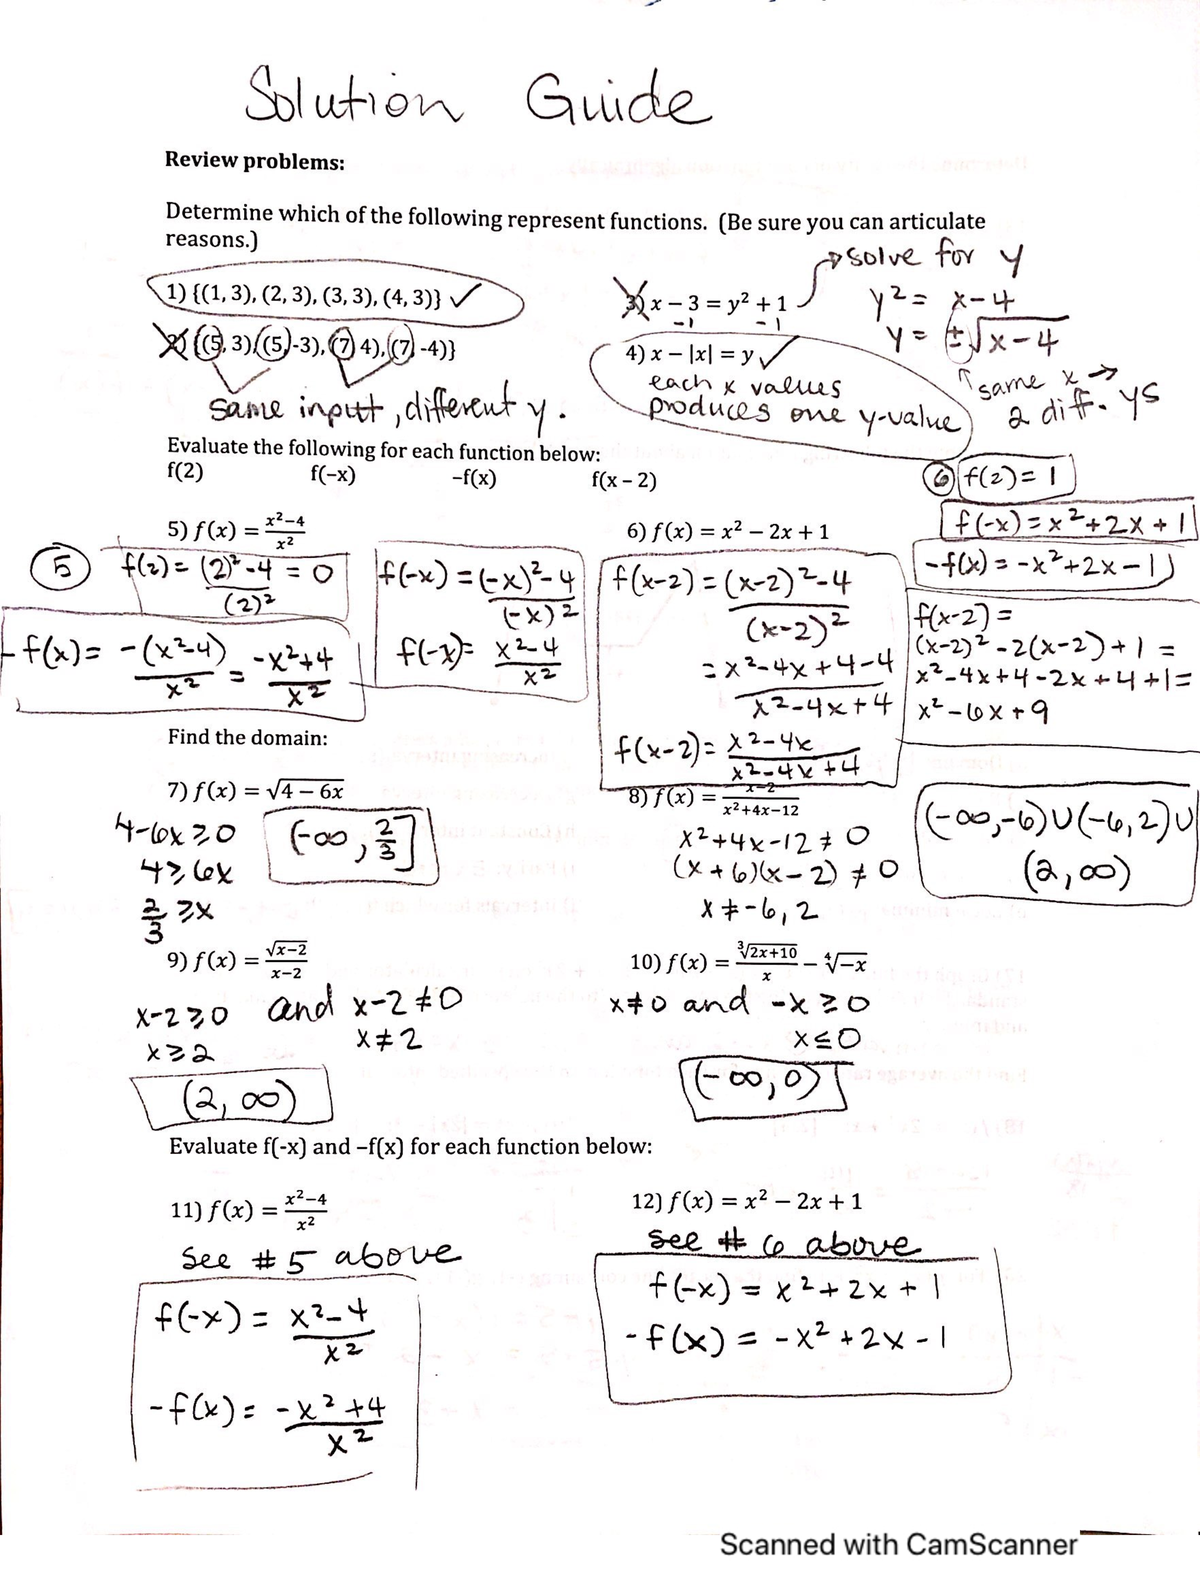 Solution Guide
Review problems:
Determine which of the following represent functions. (Be sure you can articulate
reasons.)
→ solve for y
1) {(1, 3), (2, 3), (3, 3), (4, 3)} ✓
3) x − 3 = y² + 1
-1 -1
y² = x-4
y = ±√(x-4)
2) {(5, 3), (5, -3), (7, 4), (7, -4)}
same input, different y.
4) x − |x| = y ✓
each x values
produces one y-value
same x →
2 diff. ys
Evaluate the following for each function below:
f(2) f(−x) −f(x) f(x − 2)
5) f(x) = (x²−4)/x²
5
f(2) = ((2)²-4)/(2)² = 0
f(-x) = ((-x)²-4)/(-x)²
f(-x) = (x²-4)/x²
-f(x) = -(x²-4)/x² = (-x²+4)/x²
f(x-2) = ((x-2)²-4)/(x-2)²
= (x²-4x+4-4)/(x²-4x+4)
f(x-2) = (x²-4x)/(x²-4x+4)
6) f(x) = x² − 2x + 1
6 f(2) = 1
f(-x) = x²+2x+1
-f(x) = -x²+2x-1
f(x-2) =
(x-2)²-2(x-2)+1 =
x²-4x+4-2x+4+1=
x²-6x+9
Find the domain:
7) f(x) = √(4 − 6x)
4-6x ≥ 0
4 ≥ 6x
2/3 ≥ x
(-∞, 2/3]
8) f(x) = (x−2)/(x²+4x−12)
x²+4x-12 ≠ 0
(x+6)(x-2) ≠ 0
x ≠ -6, 2
(-∞,-6)∪(-6,2)∪
(2,∞)
9) f(x) = √(x−2)/(x−2)
x-2 ≥ 0 and x-2 ≠ 0
x ≥ 2 x ≠ 2
(2, ∞)
10) f(x) = ∛(2x+10)/x − ∜(−x)
x ≠ 0 and -x ≥ 0
x ≤ 0
(-∞, 0)
Evaluate f(-x) and –f(x) for each function below:
11) f(x) = (x²−4)/x²
see # 5 above
f(-x) = (x²-4)/x²
-f(x) = (-x²+4)/x²
12) f(x) = x² − 2x + 1
see # 6 above
f(-x) = x²+2x+1
-f(x) = -x²+2x-1
Scanned with CamScanner